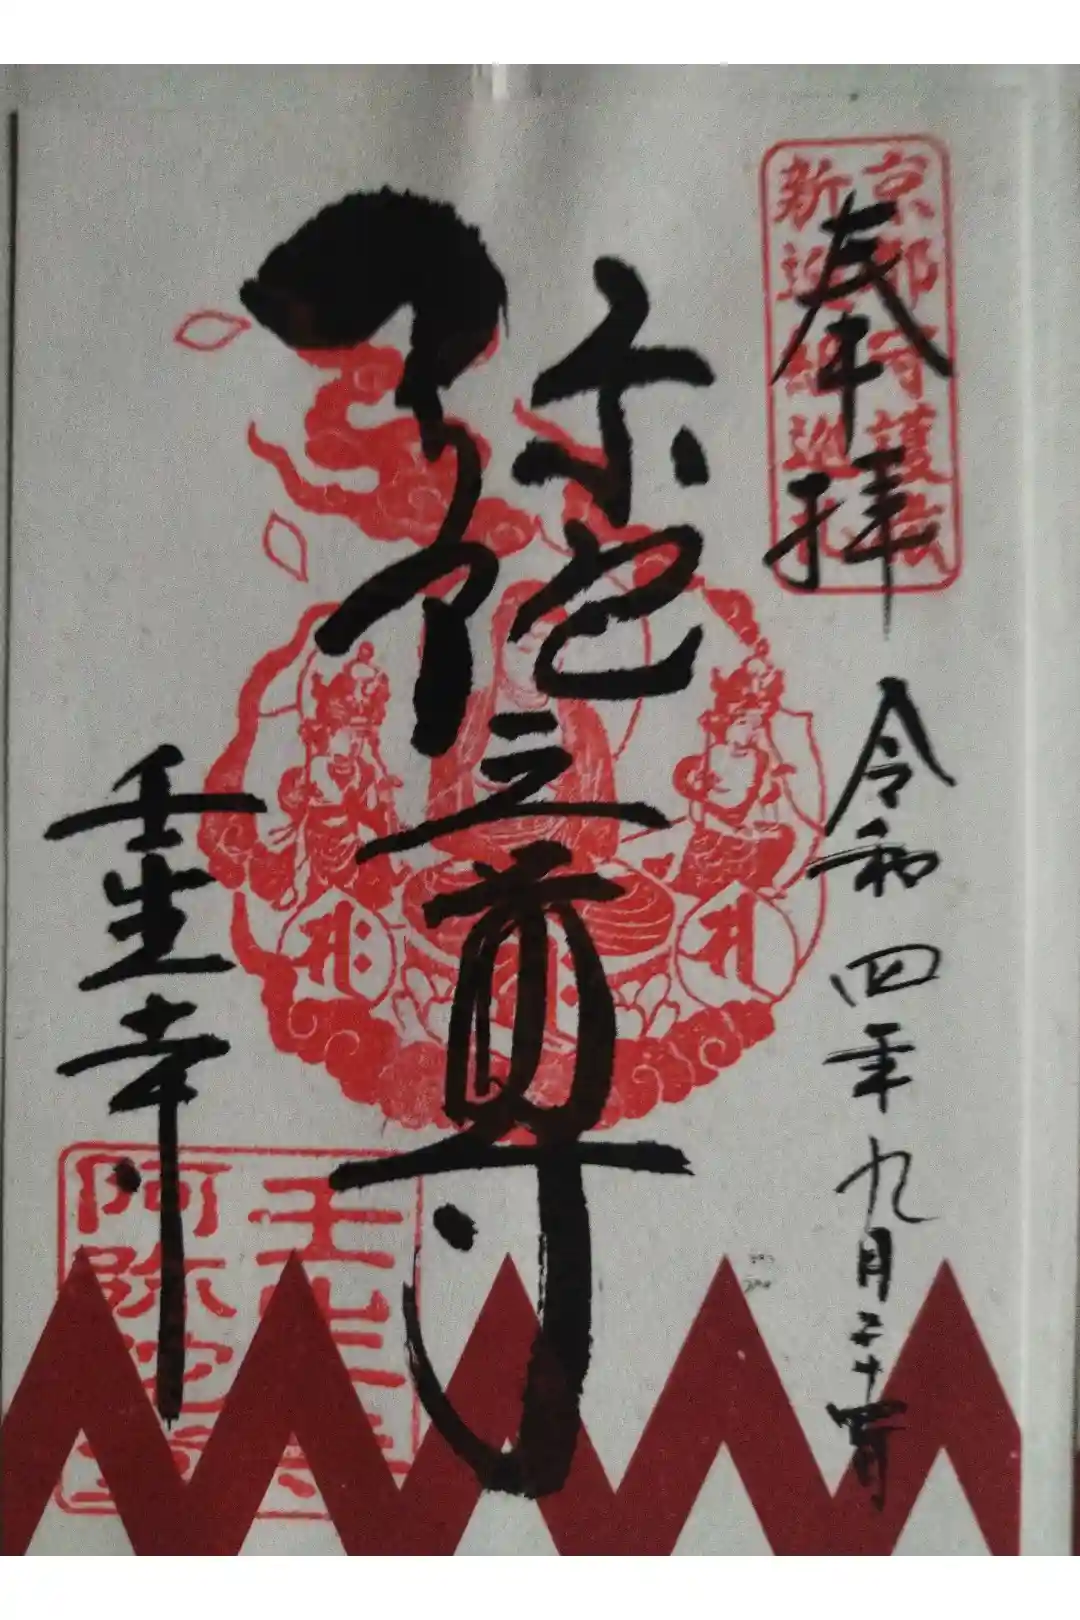 京都守護職
新選組巡礼
奉拝
令和四年九月二十四日
弥陀三尊
壬生寺
壬生寺
阿弥陀堂